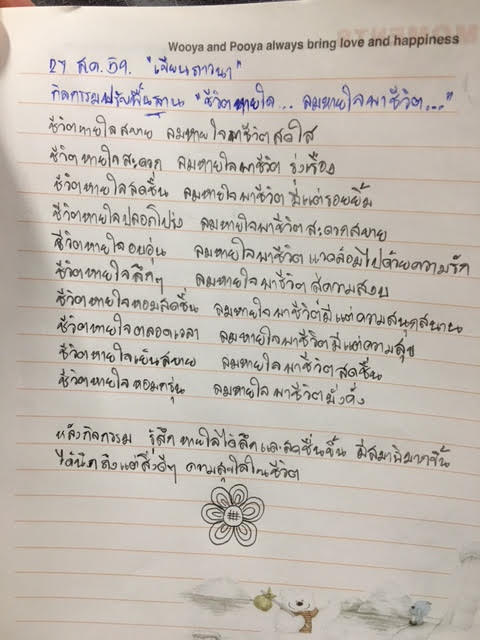 Wooya and Pooya always bring love and happiness
27 สค. 59. "เขียนภาวนา"
กิจกรรมปรับพื้นฐาน "ชีวิตหายใจ... ลมหายใจพาชีวิต..."
ชีวิตหายใจสบาย ลมหายใจพาชีวิตสดใส
ชีวิตหายใจสะดวก ลมหายใจพาชีวิต รุ่งเรือง
ชีวิตหายใจสดชื่น ลมหายใจพาชีวิตมีแต่รอยยิ้ม
ชีวิตหายใจปลอดโปร่ง ลมหายใจพาชีวิตสะดวกสบาย
ชีวิตหายใจอบอุ่น ลมหายใจพาชีวิตแวดล้อมไปด้วยความรัก
ชีวิตหายใจลึกๆ ลมหายใจพาชีวิตสู่ความสงบ
ชีวิตหายใจหอมสดชื่น ลมหายใจพาชีวิตมีแต่ความสนุกสนาน
ชีวิตหายใจตลอดเวลา ลมหายใจพาชีวิตมีแต่ความสุข
ชีวิตหายใจเย็นสบาย ลมหายใจพาชีวิตสดชื่น
ชีวิตหายใจหอมกรุ่น ลมหายใจพาชีวิตมั่งคั่ง
หลังกิจกรรม รู้สึกหายใจได้ลึกและสดชื่นขึ้น มีสมาธิมากขึ้น
ได้นึกถึงแต่สิ่งดีๆ ความสุขใจในชีวิต